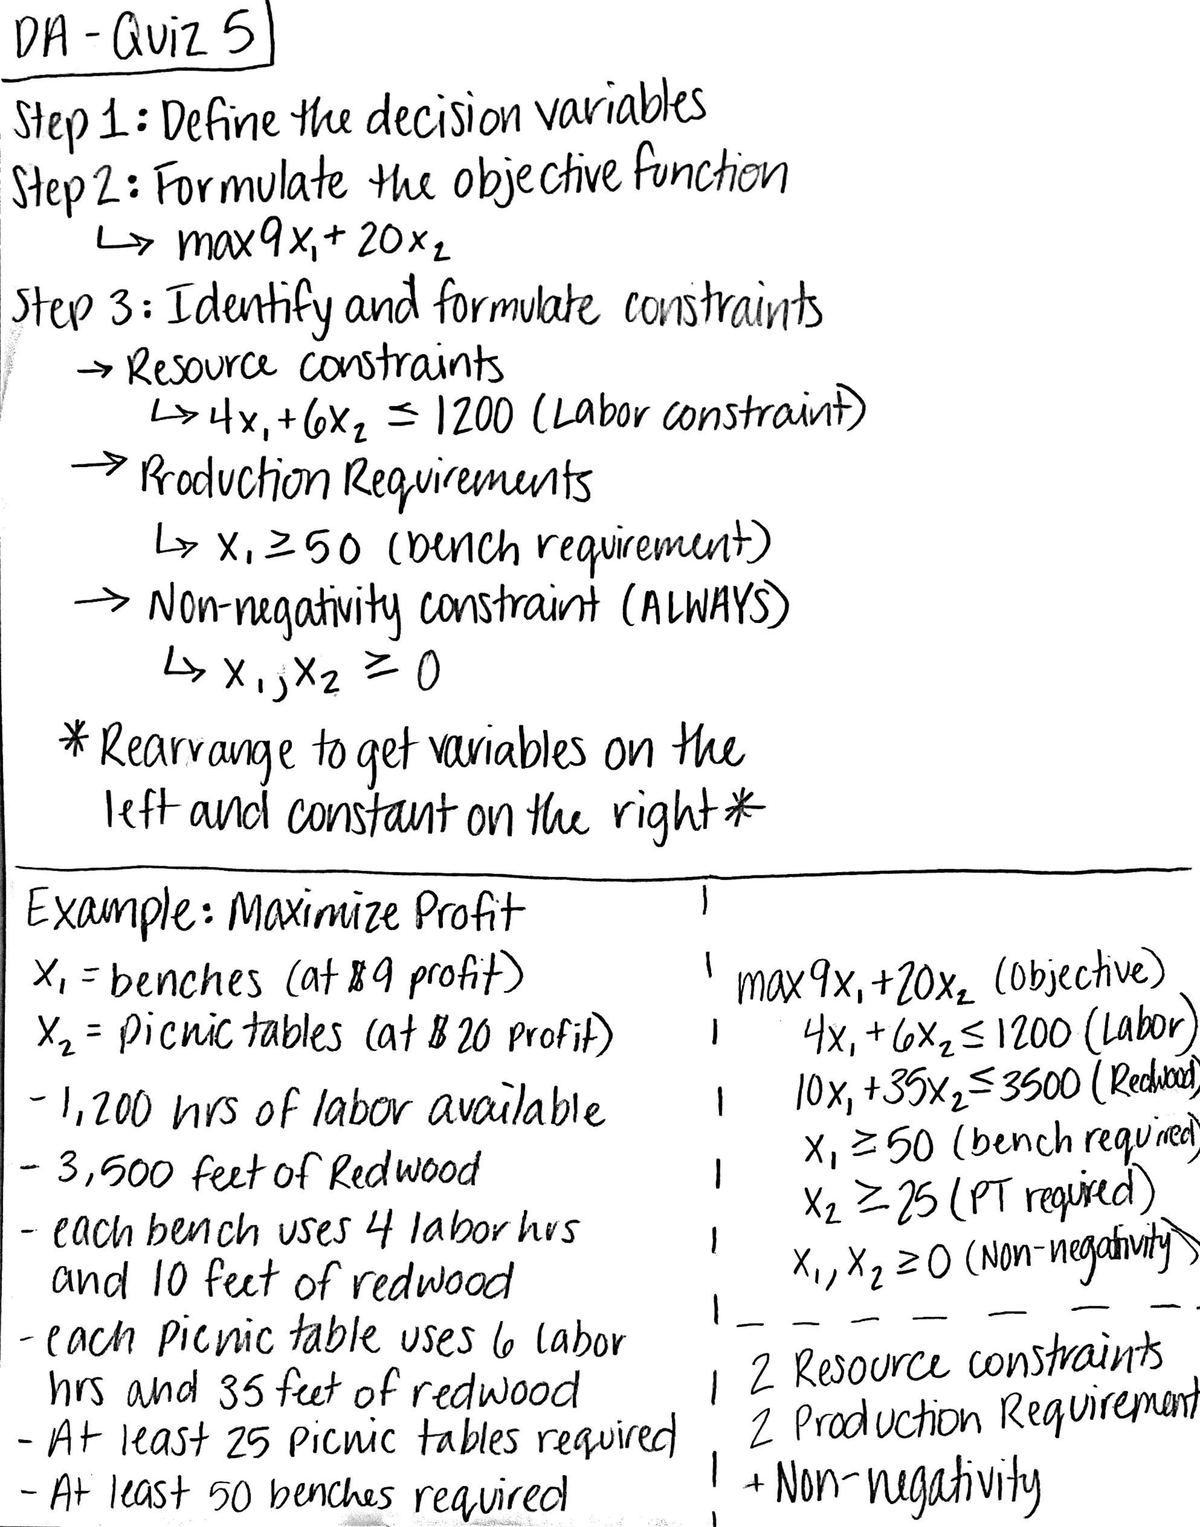 DA - Quiz 5
Step 1: Define the decision variables
Step 2: Formulate the objective function
↳ max 9x₁ + 20x₂
Step 3: Identify and formulate constraints
→ Resource constraints
↳ 4x₁ + 6x₂ ≤ 1200 (Labor constraint)
→ Production Requirements
↳ x₁ ≥ 50 (bench requirement)
→ Non-negativity constraint (ALWAYS)
↳ x₁, x₂ ≥ 0
* Rearrange to get variables on the
left and constant on the right *
Example: Maximize Profit
x₁ = benches (at $9 profit)
x₂ = picnic tables (at $20 profit)
- 1,200 hrs of labor available
- 3,500 feet of Redwood
- each bench uses 4 labor hrs
and 10 feet of redwood
- each picnic table uses 6 labor
hrs and 35 feet of redwood
- At least 25 picnic tables required
- At least 50 benches required
max 9x₁ + 20x₂ (objective)
4x₁ + 6x₂ ≤ 1200 (Labor)
10x₁ + 35x₂ ≤ 3500 (Redwood)
x₁ ≥ 50 (bench required)
x₂ ≥ 25 (PT required)
x₁, x₂ ≥ 0 (Non-negativity)
2 Resource constraints
2 Production Requirement
+ Non-negativity